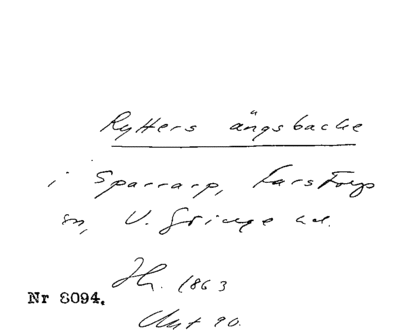 Rytters ängsbacke
i Sparrarp, Farstorps
sn, V. Göinge hd.
1863
Nr 8094.
90.